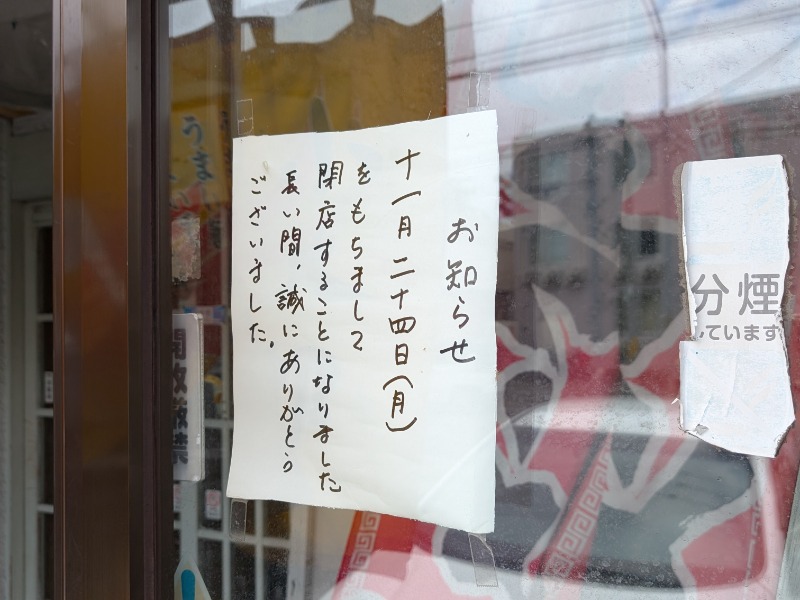 お知らせ
十一月二十四日(月)
をもちまして
閉店することになりました
長い間、誠にありがとう
ございました。
分煙
しています
開放厳禁
うまい